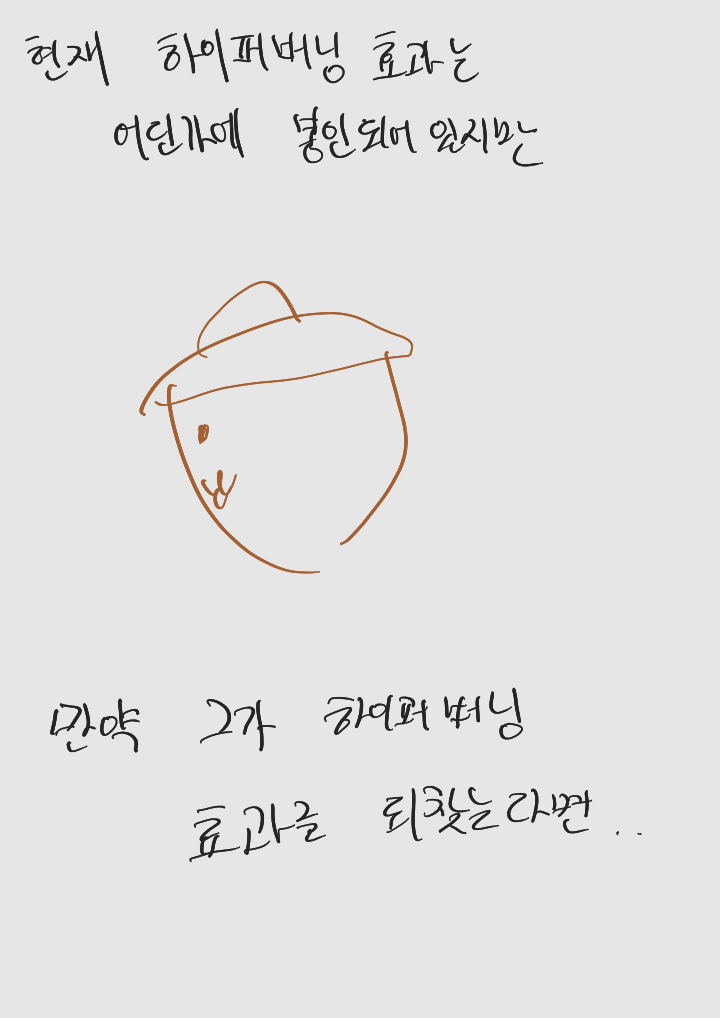 현재 하이퍼버닝 효과는
어딘가에 봉인되어 있지만
만약 그가 하이퍼버닝
효과를 되찾는다면..